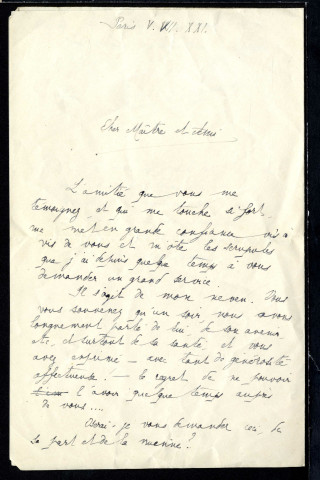 Paris V. VII. XXI.
Cher Maître et Ami
L'amitié que vous me
temoignez et qui me touche si fort
me met en grande confiance vis à
vis de vous et m'ôte les scrupules
que j'ai depuis quelque temps à vous
demander un grand service.
Il s'agit de mon neveu. Vous
vous souvenez qu'un soir nous avons
longuement parlé de lui, de son avenir
etc. et surtout de sa santé et vous
avez exprimé – avec tant de générosité
affectueuse! – le regret de ne pouvoir
l'avoir quelque temps auprès
de vous....
Oserai-je vous demander cela, de
sa part et de la mienne?